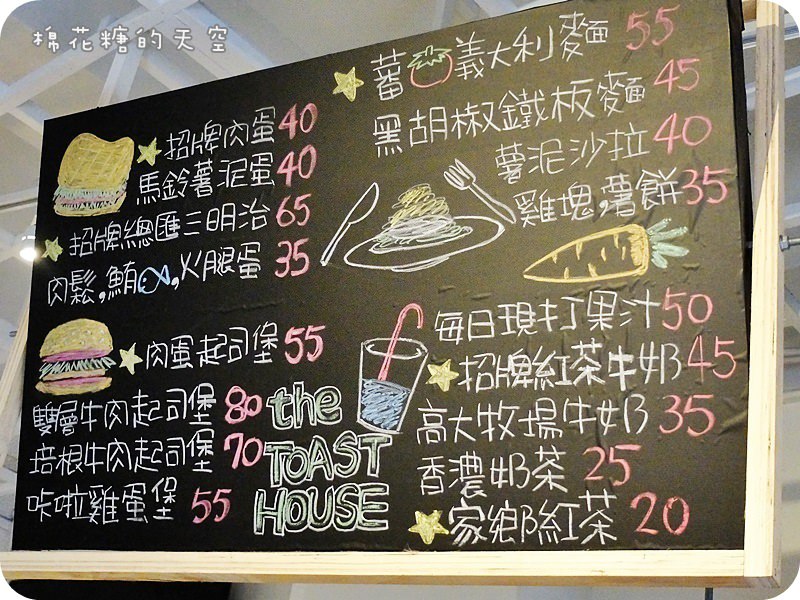 棉花糖的天空
招牌肉蛋 40
馬鈴薯泥蛋 40
招牌總匯三明治 65
肉鬆,鮪,火腿蛋 35
肉蛋起司堡 55
雙層牛肉起司堡 80
培根牛肉起司堡 70
咔啦雞蛋堡 55
the
TOAST
HOUSE
蕃義大利麵 55
黑胡椒鐵板麵 45
薯泥沙拉 40
雞塊,薯餅 35
每日現打果汁 50
招牌紅茶牛奶 45
高大牧場牛奶 35
香濃奶茶 25
家鄉紅茶 20